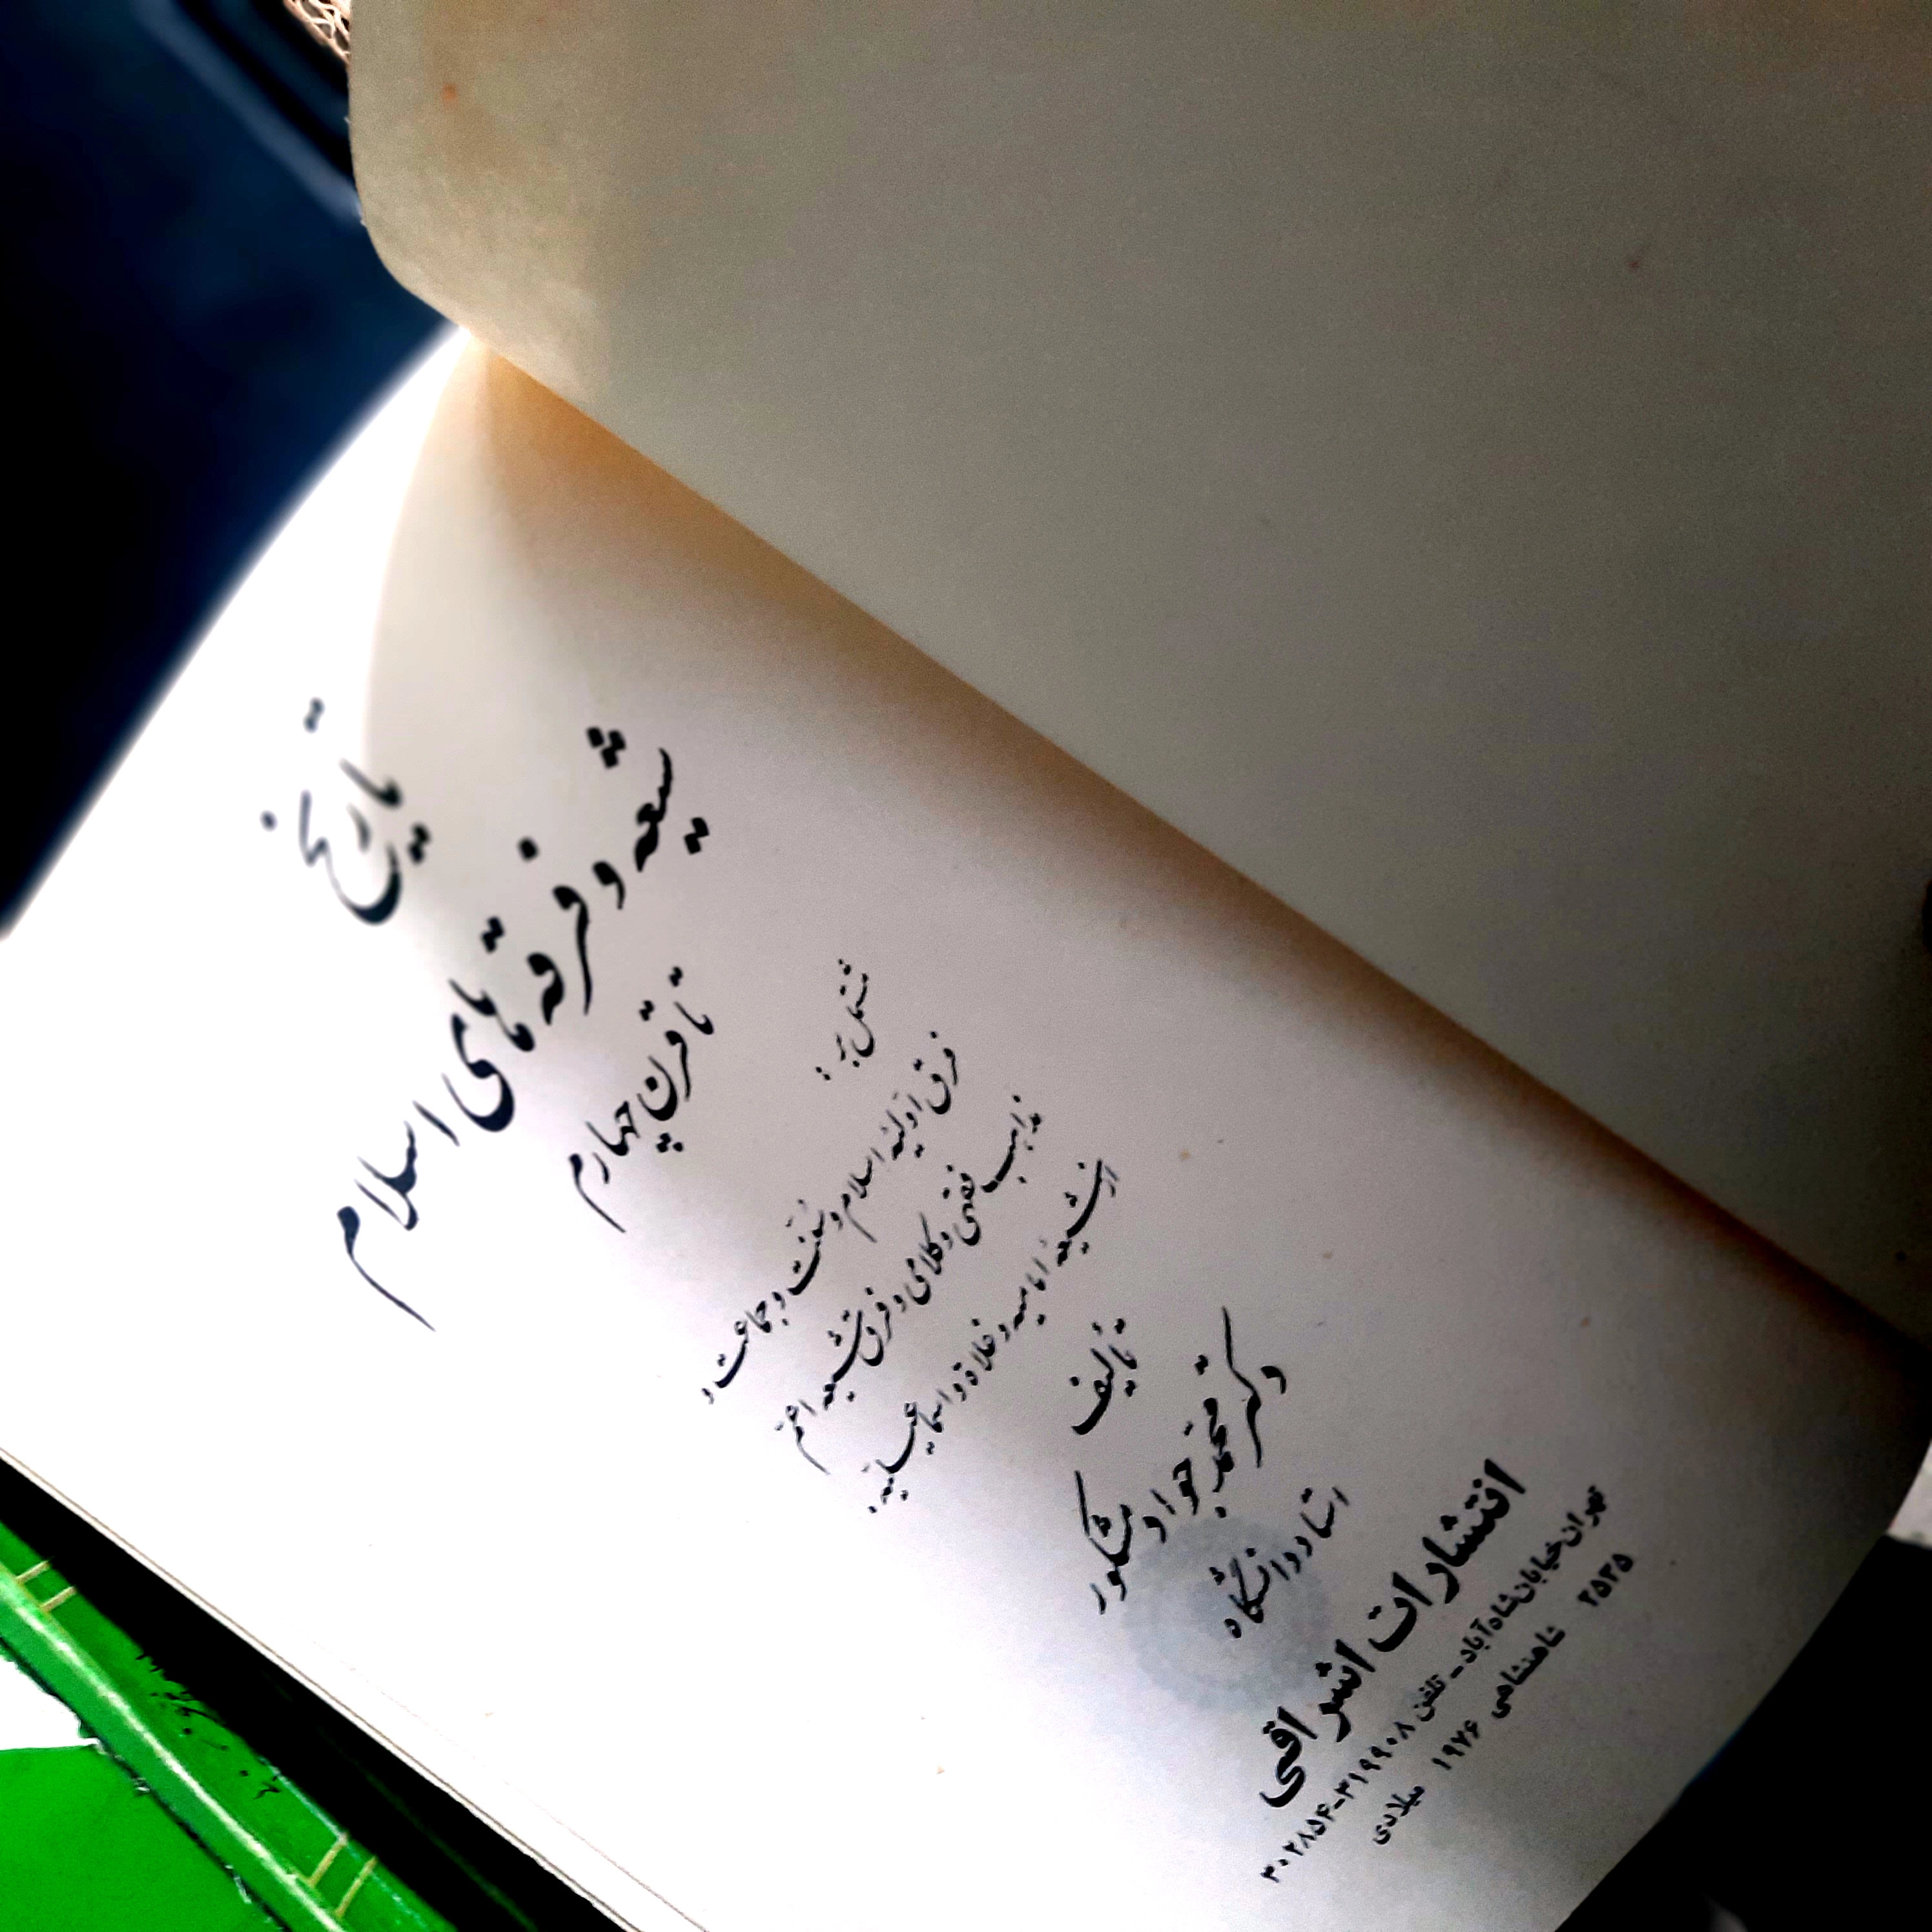 تاریخ
شیعه و فرقه‌های اسلام
تا قرن چهارم
مشتمل بر :
فرق اوّلیّه اسلام و سُنّت و جماعت و
مذاهب فقهی و کلامی و فرق شیعه اعمّ
از شیعهٔ امامیه و غلاة و اسماعیلیّه .
تألیف
دکتر محمّد جواد مشکور
استاد دانشگاه
انتشارات اشراقی
تهران خیابان شاه‌آباد – تلفن ۳۱۹۹۰۸-۳۰۲۸۵۴
۲۵۳۵ شاهنشاهی ۱۹۷۶ میلادی